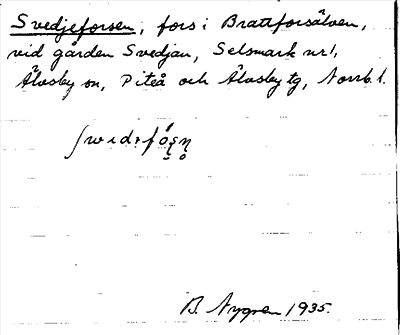 Svedjeforsen, fors i Bratforsälven,
vid gården Svedjan, Selsmark nr 1,
Älvsby sn, Piteå och Älvsby tg, Norrb. l.
B. Nygren 1935.